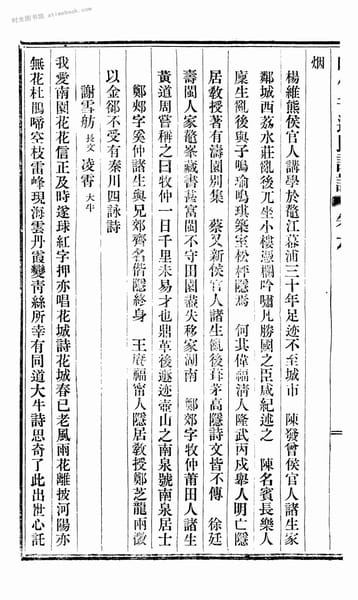 时光图书馆 etimebook.com
烟
楊維熊侯官人講學於鼇江幕浦三十年足迹不至城市 陳發曾侯官人諸生家
鄰城西荔水莊亂後兀坐小樓憑欄吟嘯凡勝國之臣咸紀述之 陳名賓長樂人
廩生亂後與子鳴瑜鳴琪築室松枰隱焉 何其偉福淸人隆武丙戌舉人明亡隱
居敎授著有濤園別集 蔡又新侯官人諸生亂後茸茅高隱詩文皆不傳 徐延
壽閩人家鼇峯藏書甚富閩不守田園盡失移家湖南 鄭郊字牧仲莆田人諸生
黃道周嘗稱之曰牧仲一日千里未易才也鼎革後遯迹壺山之南泉號南泉居士
鄭郟字奚仲諸生與兄鄭齊名偕隱終身 王 福甯人隱居敎授鄭芝龍兩徵
以金郤不受有秦川四詠詩
謝雪舫 長文 凌霄 大牛
我愛南園花花信正及時邃球紅字押亦唱花城詩花城春已老風雨花離披河陽亦
無花杜鵑啼空枝雷峰現海雲丹霞變靑絲所幸有同道大牛詩思奇了此出世心託